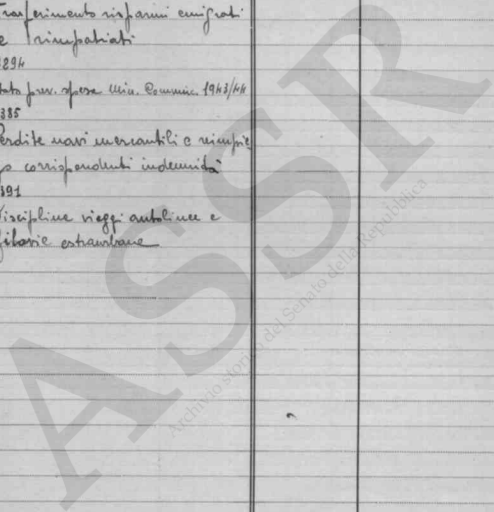 Trasferimento risparmi emigrati
e rimpatriati
2894
Stato prev. spesa Min. Comunic. 1943/44
385
Perdite navi mercantili e reimpie
go corrispondenti indennità
391
Disciplina viaggi autolinee e
filovie extraurbane
ASSR
Archivio storico del Senato della Repubblica